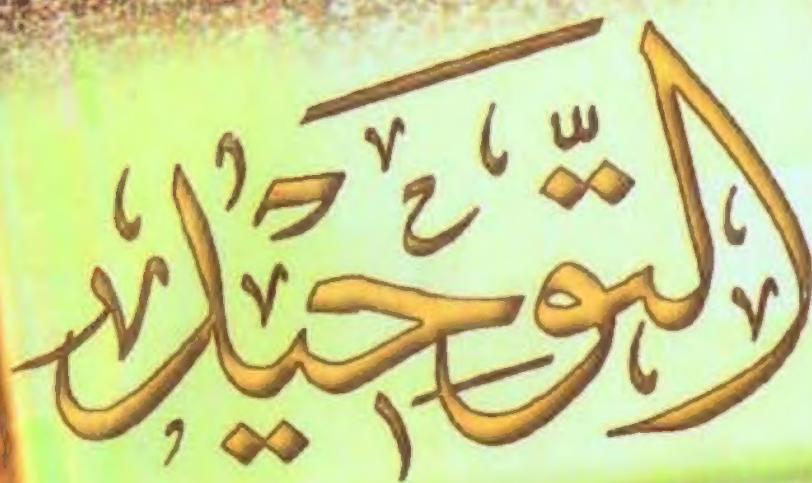 التوحيد